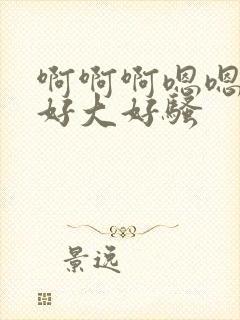 啊啊啊嗯嗯
好大好骚
景远